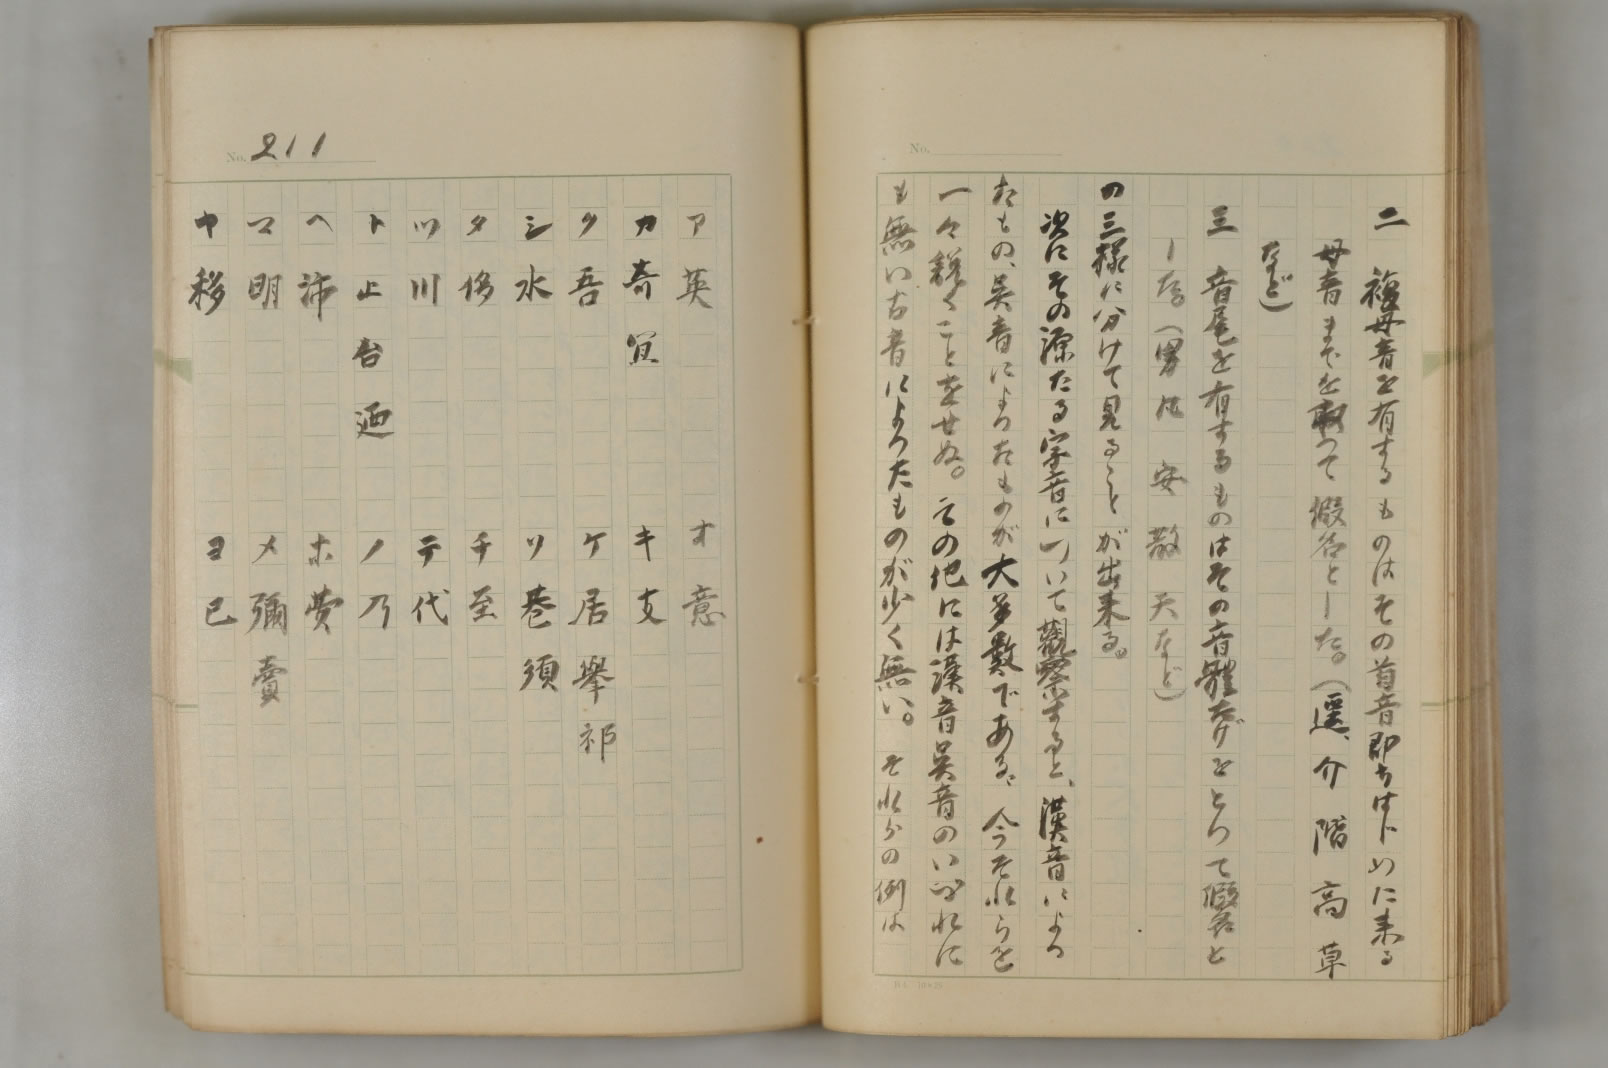 二　複母音を有するものはその首音即ちはじめに来る
母音までを取つて假名とした。（介　階　高　草
など）
三　音尾を有するものはその音體だけをとつて假名と
した。（男　凡　安　散　天など）
の三様に分けて見ることが出来る。
次にその源たる字音について觀察すると、漢音によつ
たもの、呉音によつたものが大多數である、今それらを
一々説くことをせぬ。その他には漢音呉音のいづれに
も無い古音によつたものが少く無い。それらの例は
No. 211
ア英　オ意
カ奇宜　キ支
ク吾　ケ居擧祁
シ水　ソ巷須
タ侈　チ至
ツ川　テ代
ト止台迺　ノ乃
ヘ沛　ホ費
マ明　メ彌賣
ヤ移　ヨ已
No.